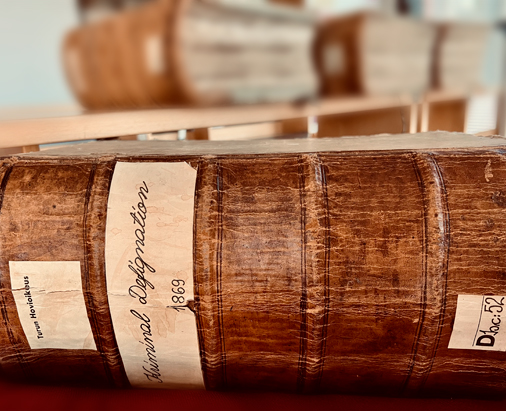 Turun Hovioikeus
Kriminal Deſignation
1869
D1ac:52